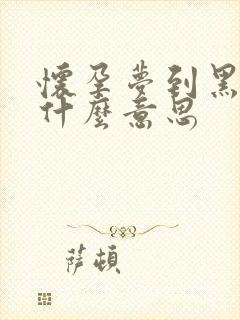 懷孕夢到黑
什麼意思
薩頓